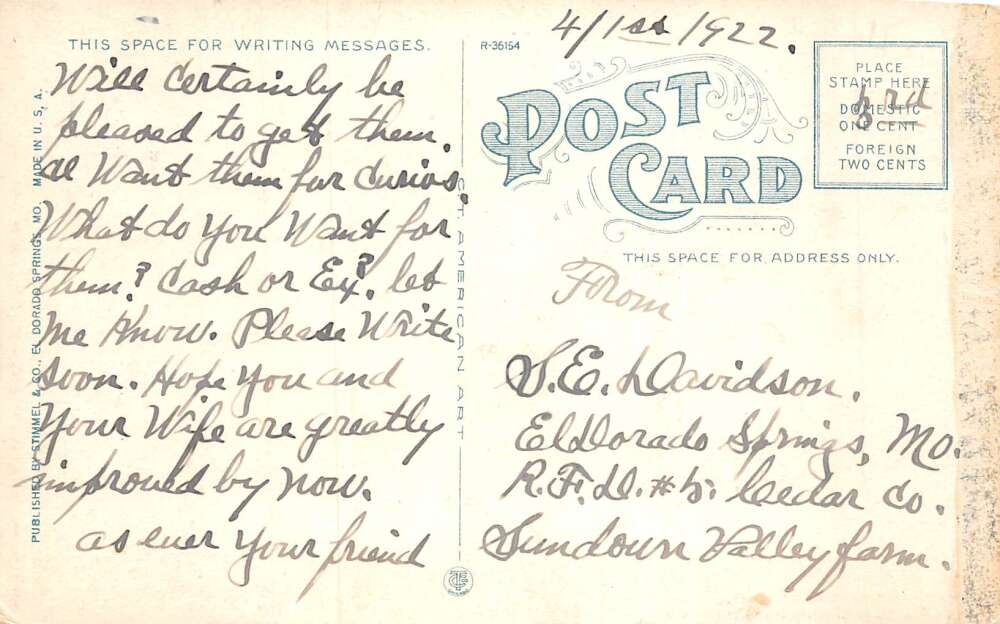 THIS SPACE FOR WRITING MESSAGES.
Will Certainly be
pleased to get them.
Want them for Curios.
What do You Want for
them? Cash or Ex? let
me Know. Please Write
soon. Hope You and
Your Wife are greatly
improved by now.
as ever Your friend
PUBLISHED BY STIMMEL & CO., EL DORADO SPRINGS, MO. MADE IN U. S. A.
C. T. AMERICAN ART
R-36154
4/1st/1922.
POST
CARD
PLACE
STAMP HERE
DOMESTIC
ONE CENT
FOREIGN
TWO CENTS
3rd
THIS SPACE FOR ADDRESS ONLY.
From
S.E. Davidson.
ElDorado Springs, Mo.
R.F.D. #5. Cedar Co.
Sundown Valley farm.